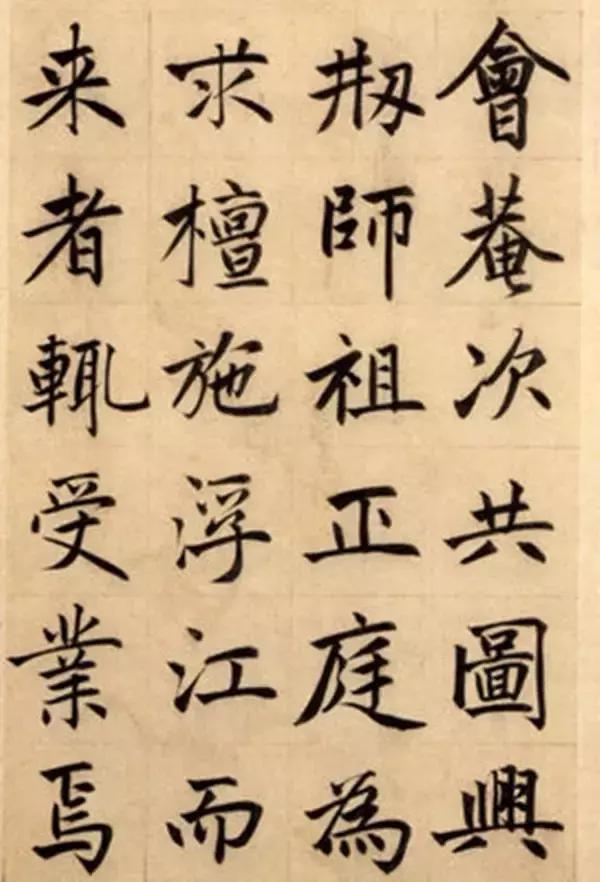 會菴次共圖興
剏師祖正庭為
求檀施浮江而
来者輒受業焉